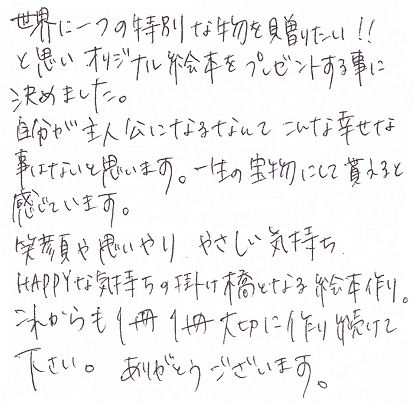 世界に一つの特別な物を贈りたい!!
と思い オリジナル絵本をプレゼントする事に
決めました。
自分が主人公になるなんて こんな幸せな
事はないと思います。一生の宝物にして貰えると
感じています。
笑顔や思いやり やさしい気持ち
HAPPYな気持ちの掛け橋となる絵本作り。
これからも1冊1冊大切に作り続けて
下さい。 ありがとうございます。